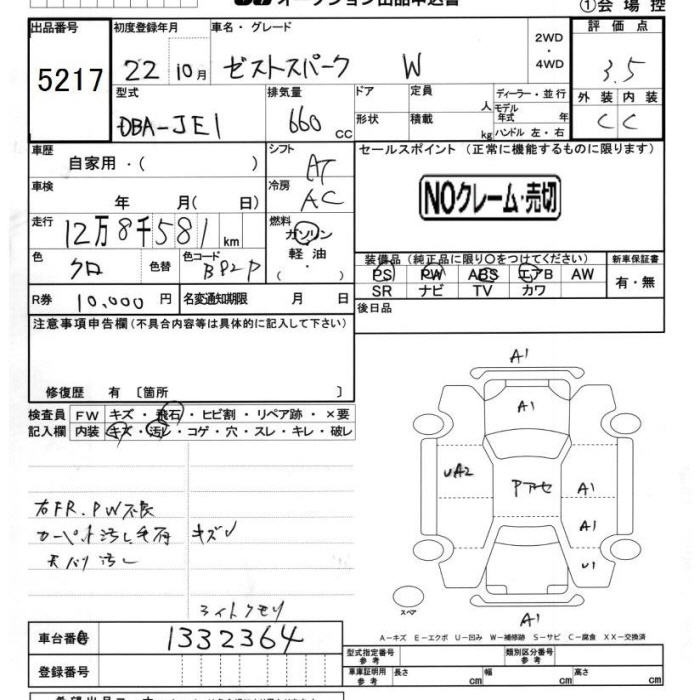 オークション出品申込書
①会場控
出品番号 初度登録年月 車名・グレード 2WD・4WD 評価点
5217 22 10月 ゼストスパーク W 3.5
型式 排気量 ドア 定員 人 ディーラー・並行 外装 内装
DBA-JE1 660 cc 形状 積載 kg モデル年式 年 ハンドル 左・右 C C
車歴 シフト セールスポイント (正常に機能するものに限ります)
自家用・( ) AT
車検 冷房
年 月( 日) AC NOクレーム・売切
走行 燃料
12万8千581km ガソリン
軽油
・( )
色 色替 色コード 装備品 (純正品に限り○をつけてください) 新車保証書
クロ BP2P PS PW ABS エアB AW 有・無
SR ナビ TV カワ
R券 10,000円 名変通知期限 月 日 後日品
注意事項申告欄(不具合内容等は具体的に記入して下さい)
修復歴 有 〔箇所 〕
検査員 FW キズ・飛石・ヒビ割・リペア跡・×要
記入欄 内装 キズ・汚レ・コゲ・穴・スレ・キレ・破レ
A1
A1
UA2 Pアセ A1
A1
U1
右FR.PW不良
カーペット汚し キズ
天バリ汚し
スペア
ライトクモリ
A1
A-キズ E-エクボ U-凹み W-補修跡 S-サビ C-腐食 XX-交換済
車台番号 1332364
型式指定番号 参考 類別区分番号 参考
登録番号 車庫証明用 参考 長さ cm 幅 cm 高さ cm